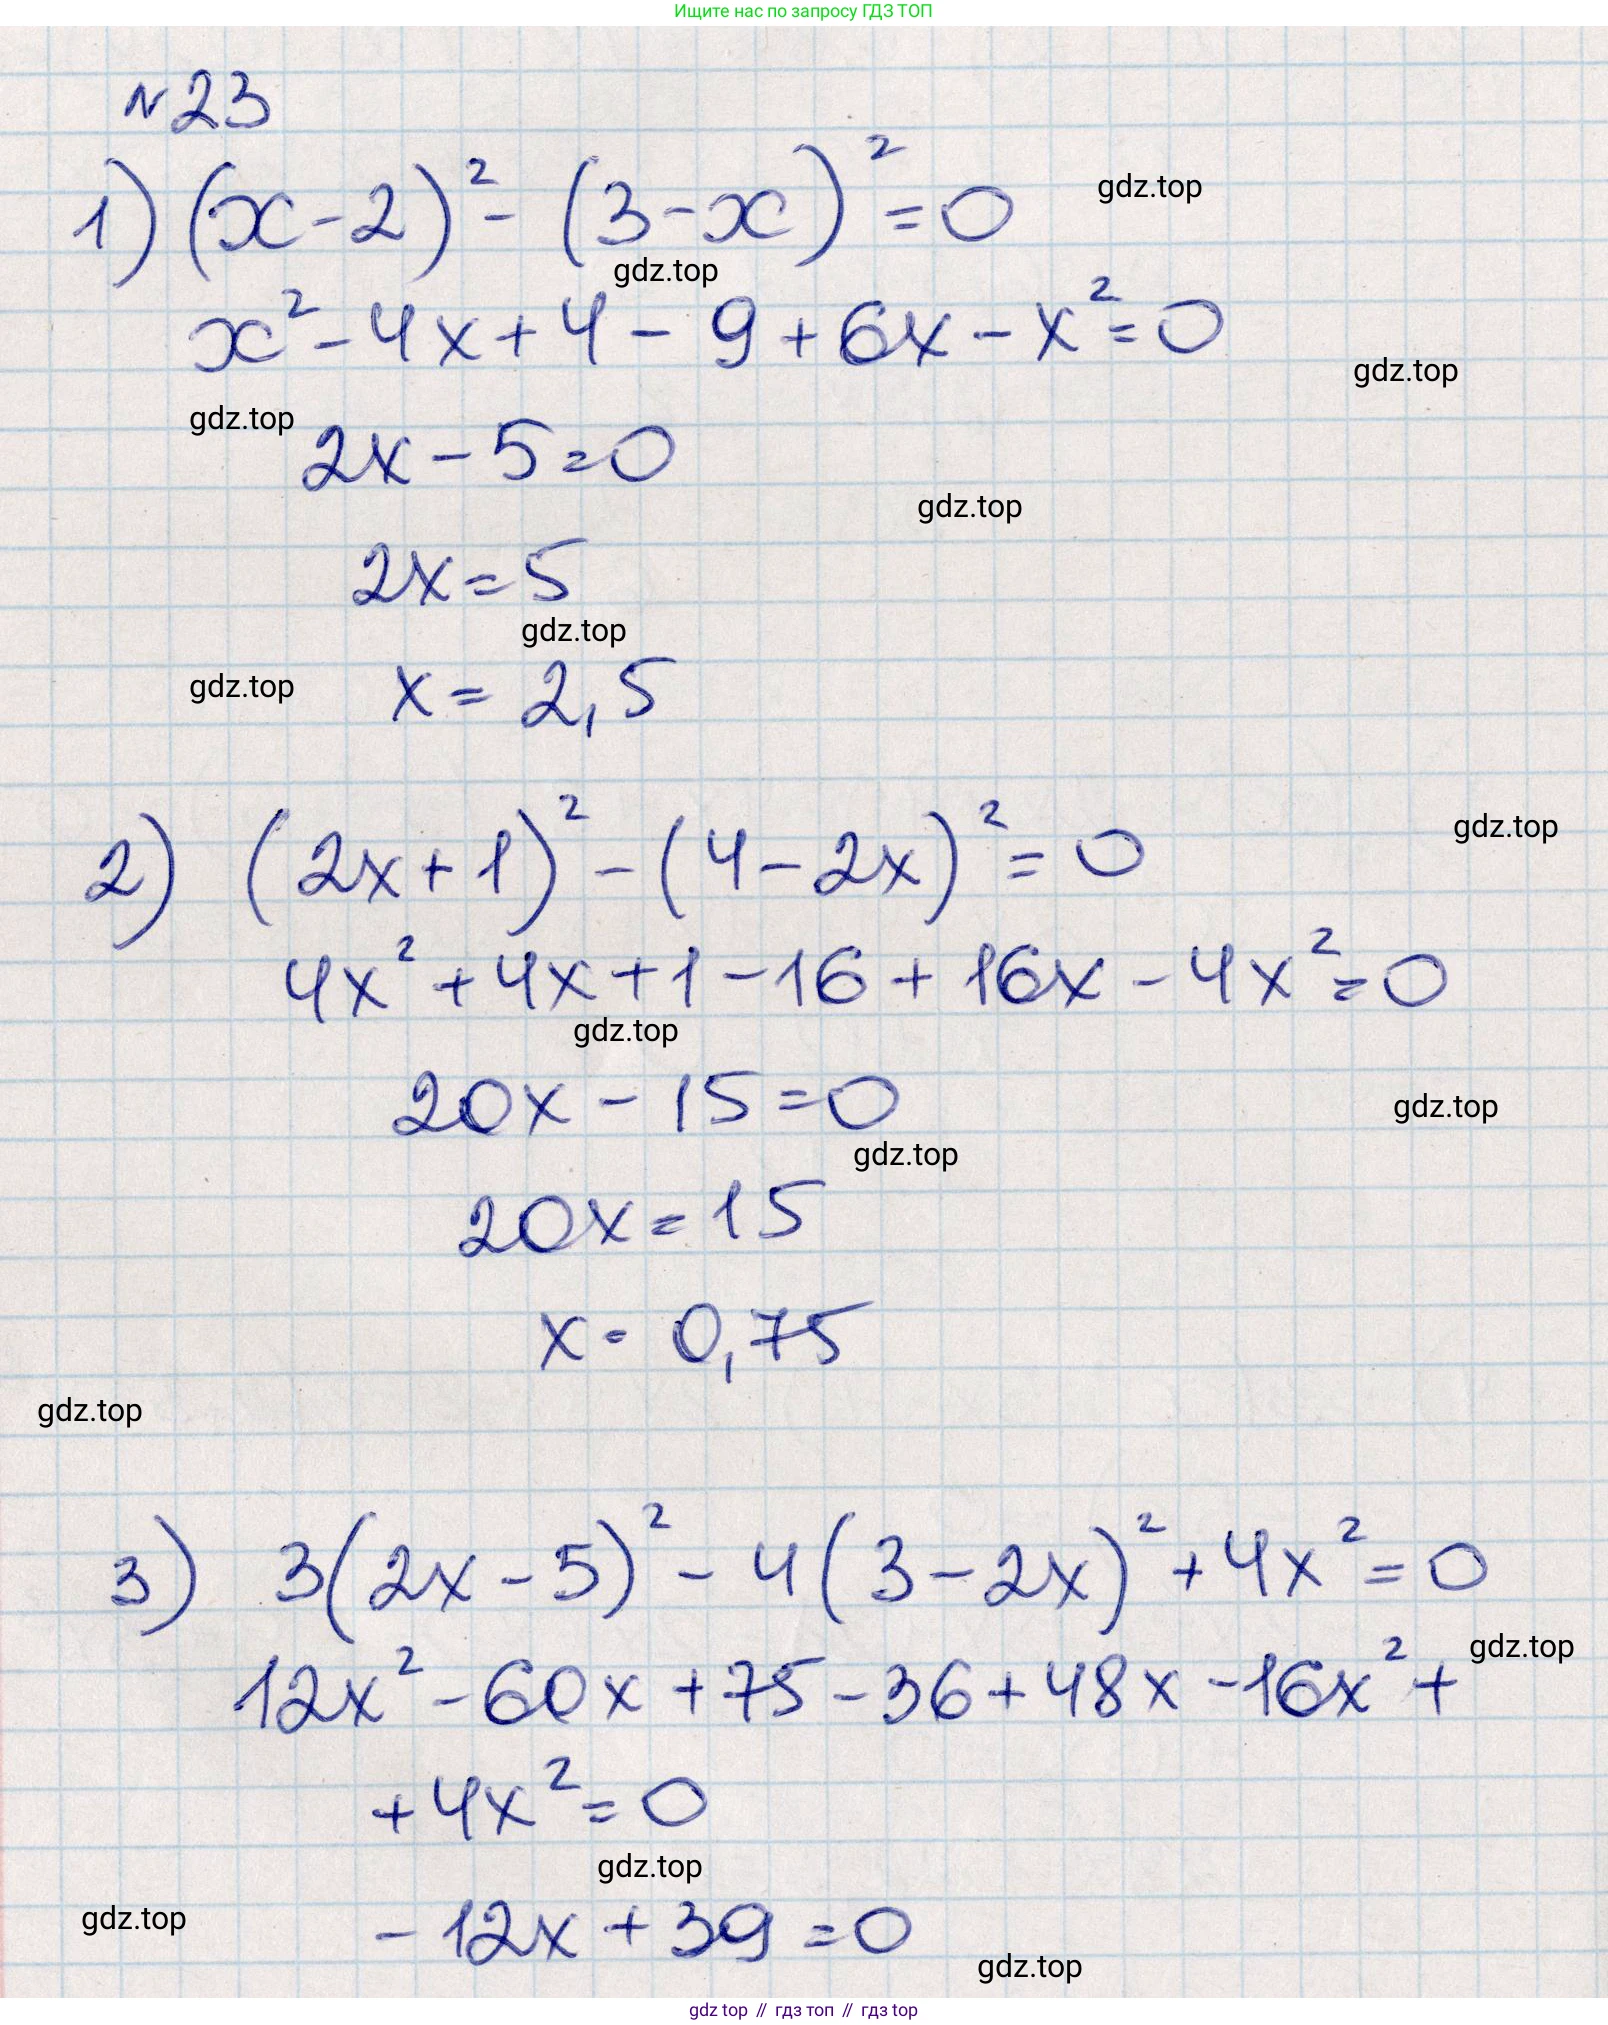 Ищите нас по запросу ГДЗ ТОП
№23
1) (x-2)² - (3-x)² = 0
gdz.top
gdz.top
x² - 4x + 4 - 9 + 6x - x² = 0
gdz.top
gdz.top
2x - 5 = 0
gdz.top
2x = 5
gdz.top
gdz.top
x = 2,5
2) (2x+1)² - (4-2x)² = 0
gdz.top
4x² + 4x + 1 - 16 + 16x - 4x² = 0
gdz.top
20x - 15 = 0
gdz.top
gdz.top
20x = 15
x = 0,75
gdz.top
3) 3(2x-5)² - 4(3-2x)² + 4x² = 0
gdz.top
12x² - 60x + 75 - 36 + 48x - 16x² +
+ 4x² = 0
gdz.top
gdz.top
- 12x + 39 = 0
gdz.top
gdz top // гдз топ // гдз top